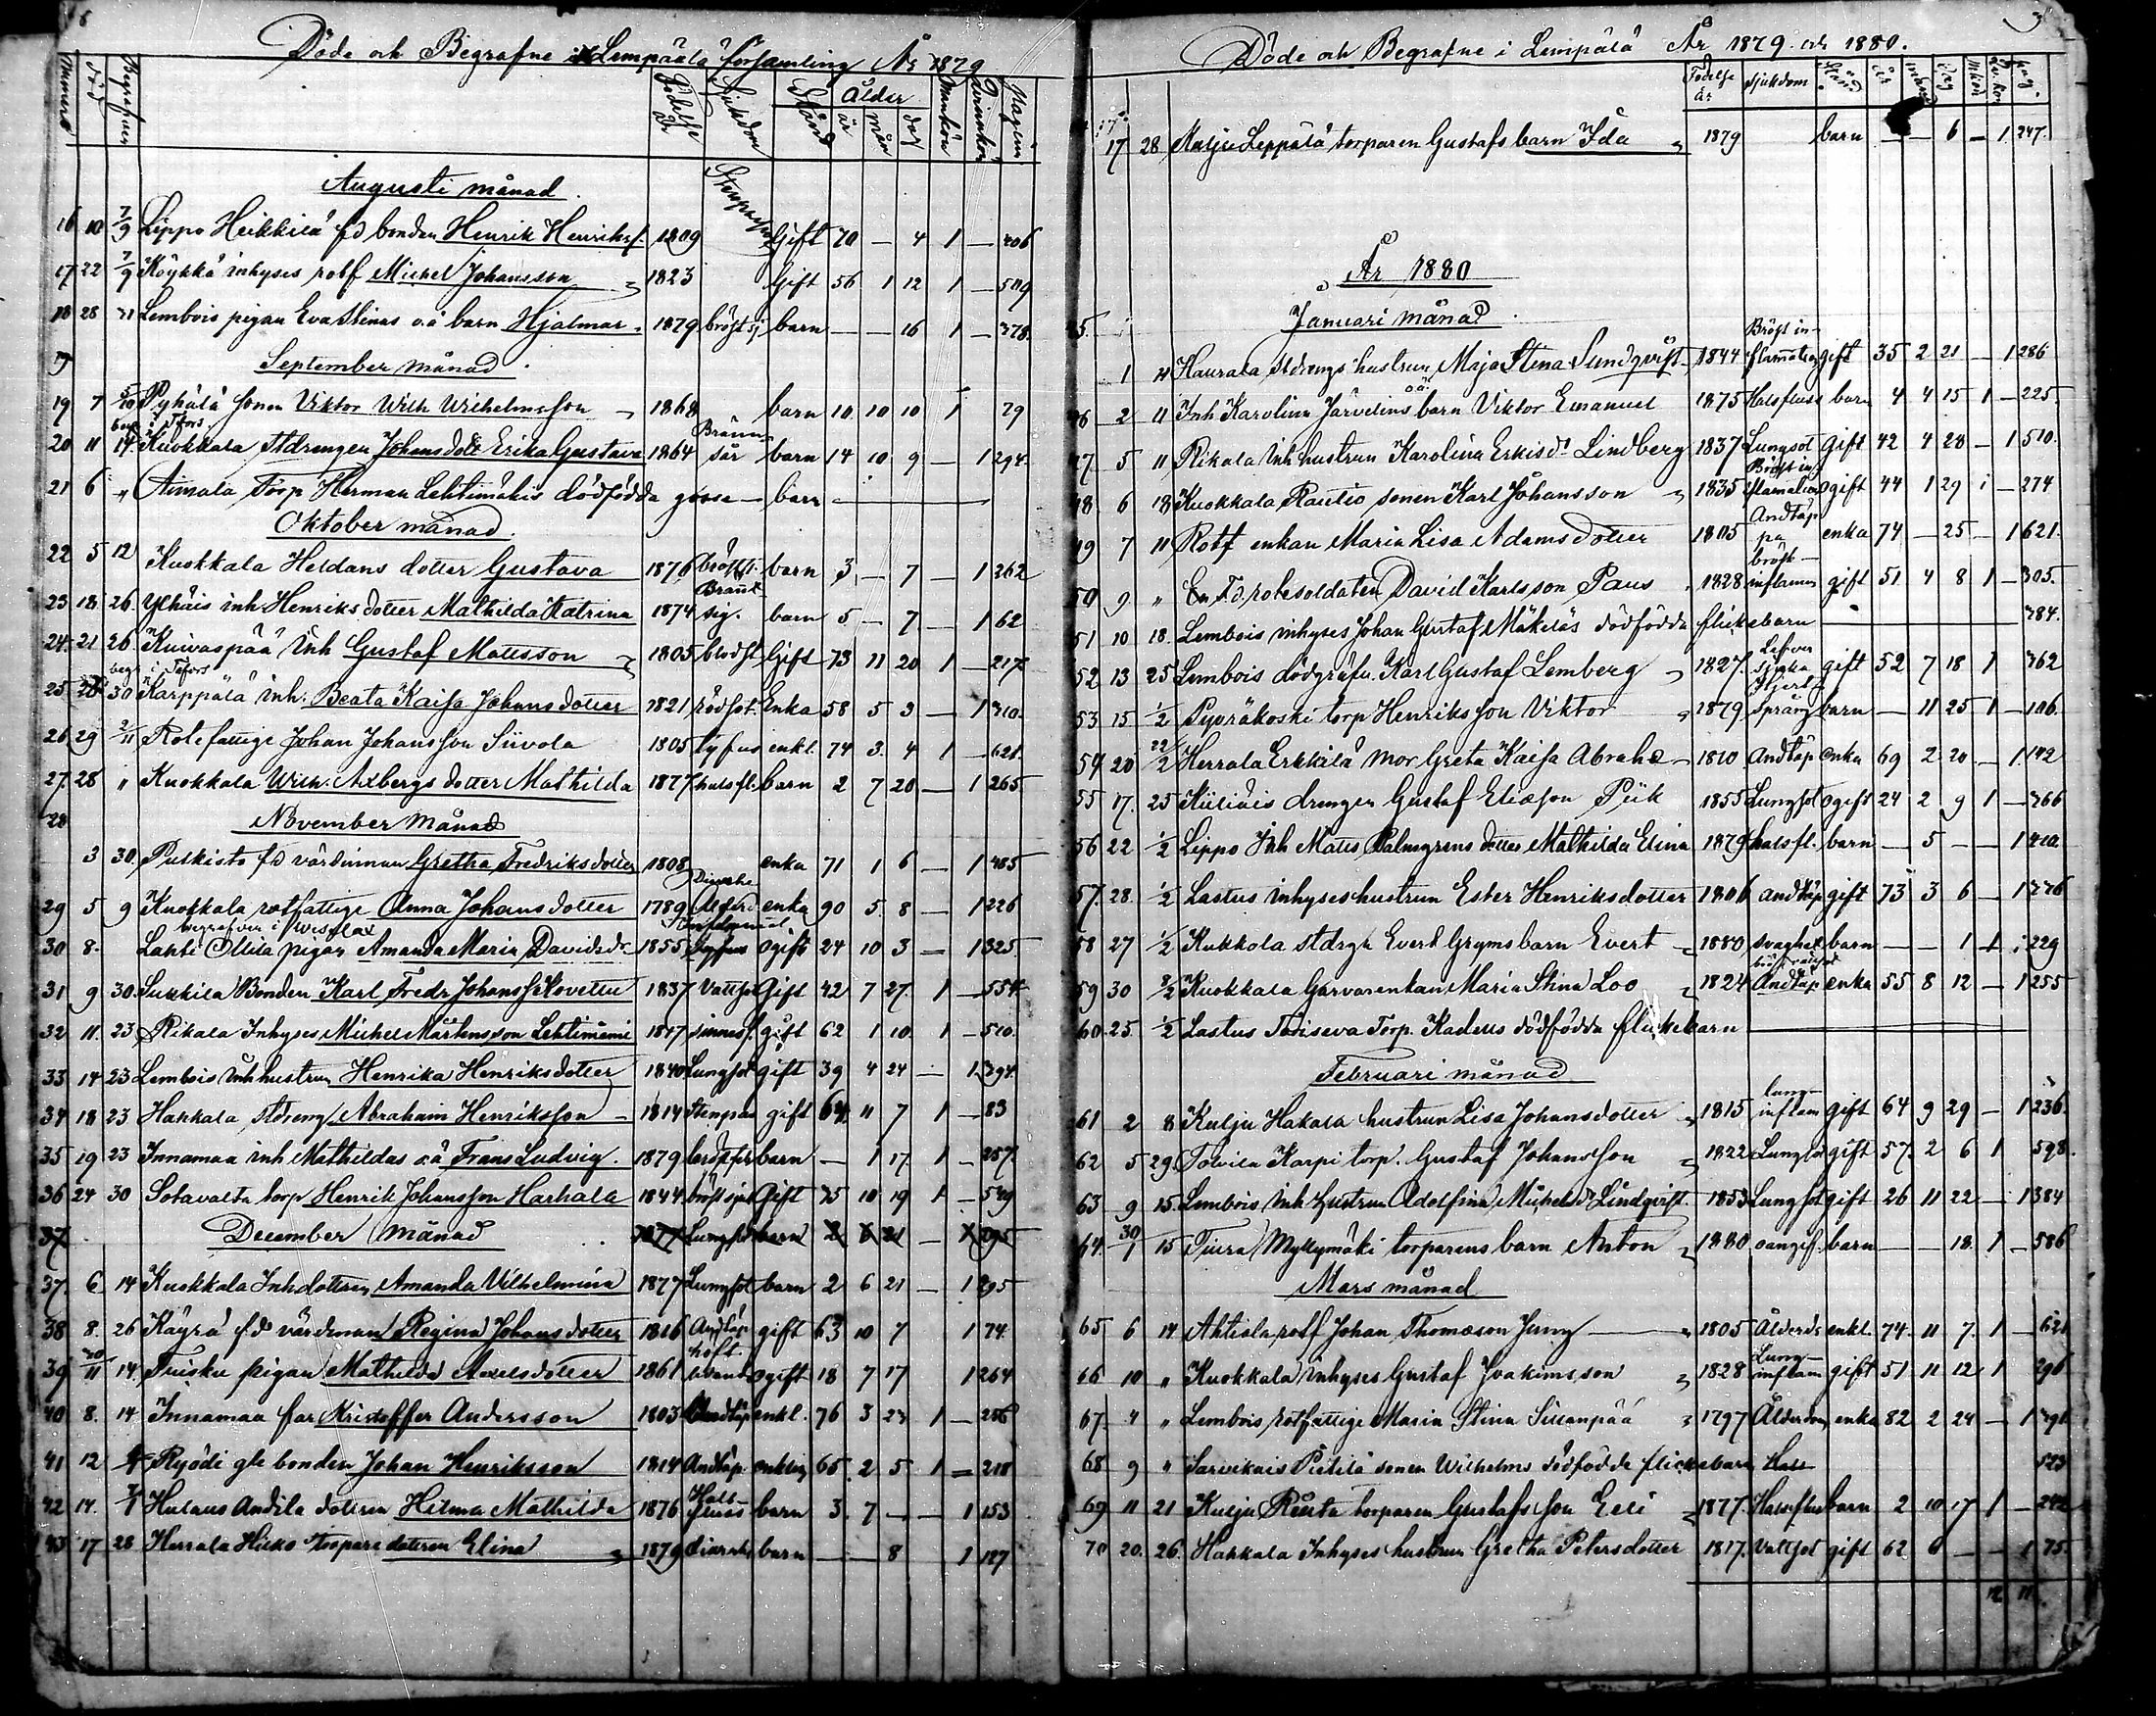 Döde och Begrafne i Lempäälä församling År 1879
Nummer Död Begrafven Födelse år Sjukdom Stånd Ålder år mån dag Mankön Qvinnkön Pagina
Augusti månad.
16 10 7/9 Lippo Heikkilä fd bonden Henrik Henriksf. 1809 Gift 70 — 4 1 — 406
17 22 7/9 Köykkä inhyses rotf Michel Johansson 1823 Gift 56 1 12 1 — 509
18 28 Lembois pigan Eva Stinas o.ä barn Hjalmar 1879 bröstsj barn — — 16 1 — 378.
19 September månad.
19 7 5/10 Pyhälä sonen Viktor Wilh Wilhelmsson 1868 barn 10 10 10 1 79
20 11 14 Kuokkala stdrengen Johans dott Erika Gustava 1864 Bränn sår barn 14 10 9 — 1 294.
21 6 „ Aimala Torp Herman Lehtimäkis dödfödda gosse — barn —
Oktober månad.
22 5 12 Kuokkala Heldans dotter Gustava 1876 bröstsj. barn 3 — 7 — 1 262
23 18. 26. Ylhäis inh Henriks dotter Mathilda Katrina 1874 barn 5 — 7 — 1 62
24. 21 26 Kuivaspää Inh Gustaf Matsson 1805 blodst Gift 73 11 20 1 — 217
25 30 Karppälä inh. Beata Kaisa Johansdotter 1821 rödsot. Enka 58 5 3 — 1 310.
26 29 2/11 Rotefattige Johan Johansson Siivola 1805 tyfus enkl. 74 3. 4 1 — 621.
27. 28 „ Kuokkala Wilh. Axbergs dotter Mathilda 1877 halsfl. barn 2 7 20 — 1 265
28 November månad
3 30. Pulkisto fd värdinnan Gretha Fredriksdotter 1808 enka 71 1 6 — 1 485
29 5 9 Kuokkala rotfattige Anna Johansdotter 1789 enka 90 5. 8 — 1 226
30 8. Lahti Ollila pigan Amanda Maria Davidsdr 1855 ogift 24 10 3 — 1 325.
31 9 30. Sukkila Bonden Karl Fredr Johansf 1837 Vattsot Gift 42 7 27. 1 — 554.
32 11. 23 Rikala Inhyses Michel Mårtensson Lehtiniemi 1817 gift 62 1 10. 1 — 510.
33 14 23 Lembois inh hustrun Henrika Henriksdotter 1840 Lungsot gift 39 4 24 — 1 394.
34 18 23 Hakkala stdreng Abraham Henriksson 1814 gift 64 11 7 1 — 83
35 19 23 Innamaa inh Mathildas o.ä Frans Ludvig. 1879 barn — 1 17. 1 — 257.
36 24 30 Sotavalta torp Henrik Johansson Harhala 1844. bröstsjuk Gift 35 10 19 1 — 549
37 December månad 1877 Lungsot barn 2 6 21 — 1 295
37 6 14 Kuokkala Inh dottren Amanda Vilhelmina 1877 Lungsot barn 2 6 21 — 1 295
38 8. 26 Käyrä fd värdinnan Regina Johansdotter 1816 Andtäp gift 63 10 7 1 74.
39 30/11 14 Tuisku pigan Mathilda Axelsdotter 1861 ogift 18 7 17 1 264
40 8. 14 Innamaa far Kristoffer Andersson 1803 Andtäp enkl. 76 3 23 1 — 256
41 12 Ryödi gle bonden Johan Henriksson 1814 Andtäp enkling 65. 2 5 1 — 218
42 14. 7/1 Hulaus Andila dottren Hilma Mathilda 1876 Hals fluss barn 3. 7 — — 1 153
43 17 28 Herrala Hieko torpare dotren Elina 1879 diarrh. barn — — 8 1 127
3
Döde och Begrafne i Lempälä År 1879 och 1880.
Födelse år sjukdom Stånd år mån dag Mkön Qv. kön Pag.
17 28 Kulju Leppälä torparen Gustafs barn Ida 1879 barn — 6 — 1 247.
År 1880
Januari månad.
45.
1 11 Haurala stdrengs hustrun Maja Stina Sundqvist 1844 Bröst inflamation gift 35 2 21 — 1 286
46 2 11 Inh Karolina Järvelins o.ä. barn Viktor Emanuel 1875 Halsfluss barn 4 4 15 1 — 225.
47 5 11 Rikala Inh hustrun Karolina Eriksdr Lindberg 1837 Lungsot Gift 42 4 28 — 1 510.
48 6 18 Kuokkala Rautio sonen Karl Johansson 1835 Bröst inflamation ogift 44 1 29 1 — 274
49 7 11 Rotf enkan Maria Lisa Adamsdotter 1805 Andtäppa enka 74 — 25 — 1 621.
50 9 „ En F.d. rotesoldaten David Karlsson Paus 1828 bröst inflamm gift 51 4 8 1 — 305.
51 10 18. Lembois inhyses Johan Gustaf Mäkeläs dödfödda flickebarn — 384.
52 13 25 Lembois dödgräfv. Karl Gustaf Lemberg 1827. Lefver sjuka gift 52 7 18 1 362
53 15 1/2 Pyöräkoski torp Henriks son Viktor 1879 Hjert språng barn — 11 25 1 — 106.
54 20 22/2 Herrala Erkkilä mor Greta Kaisa Abrahs 1810 Andtäp enka 69 2 20 — 1 142
55 17. 25 Kiiliäis drengen Gustaf Eliasson Piik 1855 Lungsot ogift 24 2 9 1 — 366
56 22 1/2 Lippo Inh Mats Palmgrens dotter Mathilda Elina 1879 halsfl. barn — 5 — — 1 410.
57. 28. 1/2 Lastus inhyses hustrun Ester Henriksdotter 1806 andtäp gift 73 3 6 — 1 336
58 27 1/2 Kukkola stdrgn Evert Gryms barn Evert 1880 svaghet barn — — 1 1 229
59 30 8/2 Kuokkala Garvarenkan Maria Stina Loo 1824 Andtäp enka 55 8 12 — 1 255
60. 25. 1/2 Lastus Törisevä Torp. Kadeus dödfödda flickebarn —
Februari månad
61 2 8 Kulju Hakala hustrun Lisa Johansdotter 1815 lung inflam gift 64 9 29 — 1 236.
62 5 29. Tolvila Karpi torp. Gustaf Johansson 1822 Lungsot gift 57. 2 6 1 598.
63 9 15. Lembois Inh hustrun Adolfina Michelsdr Lindqvist. 1853 Lungsot gift 26 11 22 — 1 384
64. 30/1 15 Tiura Myllymäki torparens barn Anton 1880 oangif. barn — — 18. 1 — 586
Mars månad
65 6 14. Ahtiala rotf Johan Thomasson Jung 1805 Ålderds enkl. 74. 11 7. 1 — 621
66 10 „ Kuokkala inhyses Gustaf Joakimsson 1828 Lung inflam gift 51 11 12 1 296
67. 4 „ Lembois rotfattige Maria Stina Sillanpää 1797 Ålderdom enka 82 2 24 — 1 391.
68 9 „ Sarvikais Pietilä sonen Wilhelms dödfödda flickebarn 523
69 11 21 Kulju Rauta torparen Gustafs son Eeli 1877. Halsfluss barn 2 10 17 1 — 242
70 20. 26. Hakkala Inhyses hustrun Gretha Petersdotter 1817. Vattsot gift 62 6 — — 1 75.
12 11.